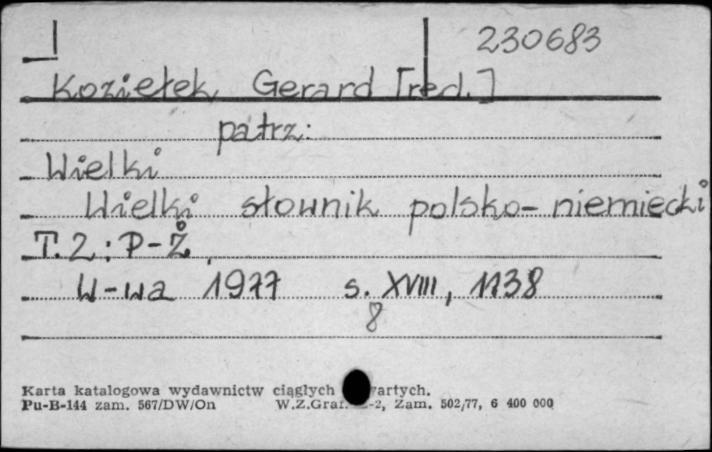 230683
Koziełek Gerard [red.]
patrz:
Wielki
Wielki słownik polsko-niemiecki
T.2: P-Ż.
W-wa 1977 s. XVIII, 1138
8
Karta katalogowa wydawnictw ciągłych
Pu-B-144 zam. 567/DW/On W.Z.Graf. Zam. 502/77, 6 400 000